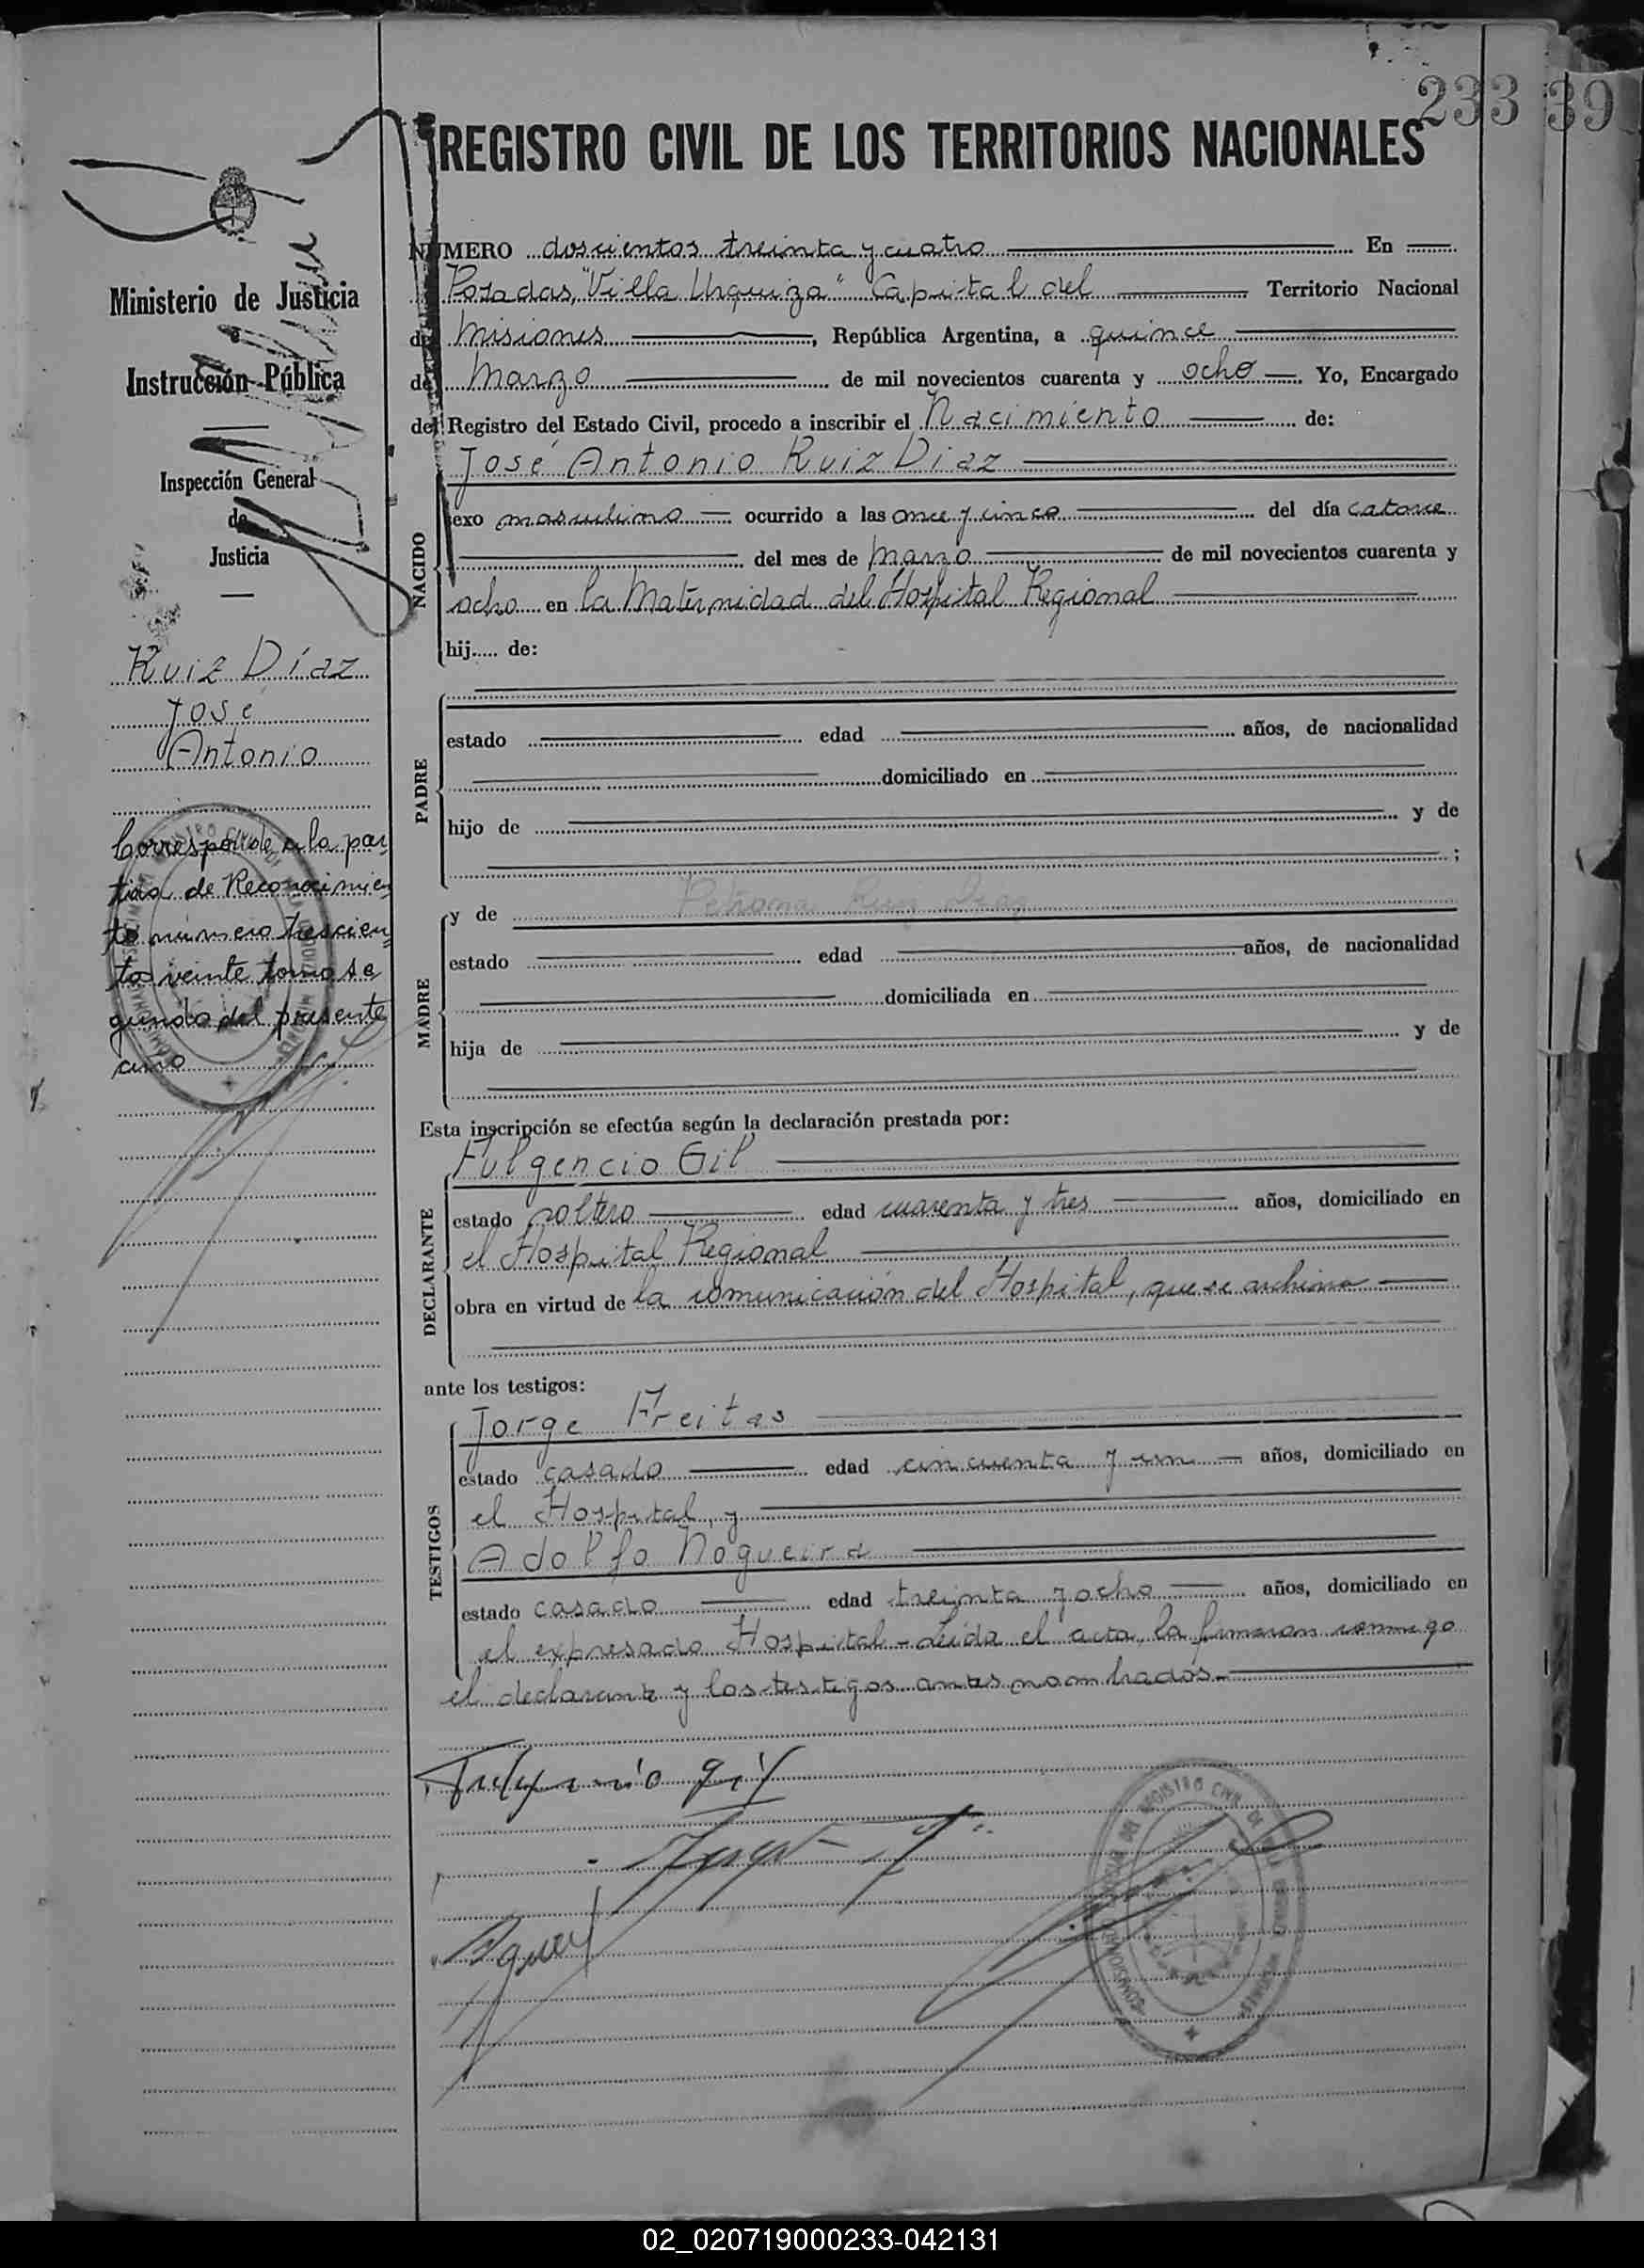 233 39
REGISTRO CIVIL DE LOS TERRITORIOS NACIONALES
Ministerio de Justicia
e
Instrucción Pública
Inspección General
de
Justicia
Ruiz Díaz
José
Antonio
Corresponde a la par
tida de Reconocimien
to número trescien
tos veinte tomo se
gundo del presente
año
NUMERO doscientos treinta y cuatro En
Posadas, "Villa Urquiza" Capital del Territorio Nacional
de Misiones, República Argentina, a quince
de Marzo de mil novecientos cuarenta y ocho Yo, Encargado
del Registro del Estado Civil, procedo a inscribir el Nacimiento de:
NACIDO
José Antonio Ruiz Diaz
sexo masculino ocurrido a las once y cinco del día catorce
del mes de Marzo de mil novecientos cuarenta y
ocho en la Maternidad del Hospital Regional
hij..... de:
PADRE
estado edad años, de nacionalidad
domiciliado en
hijo de y de
;
MADRE
y de Petrona Ruiz Diaz
estado edad años, de nacionalidad
domiciliada en
hija de y de
Esta inscripción se efectúa según la declaración prestada por:
DECLARANTE
Fulgencio Gil
estado soltero edad cuarenta y tres años, domiciliado en
el Hospital Regional
obra en virtud de la comunicación del Hospital, que se archiva
ante los testigos:
TESTIGOS
Jorge Freitas
estado casado edad cincuenta y un años, domiciliado en
el Hospital, y
Adolfo Nogueira
estado casado edad treinta y ocho años, domiciliado en
el expresado Hospital - Leida el acta, la firmaron conmigo
el declarante y los testigos antes nombrados.-
Fulgencio Gil
REGISTRO CIVIL DE
02_020719000233-042131